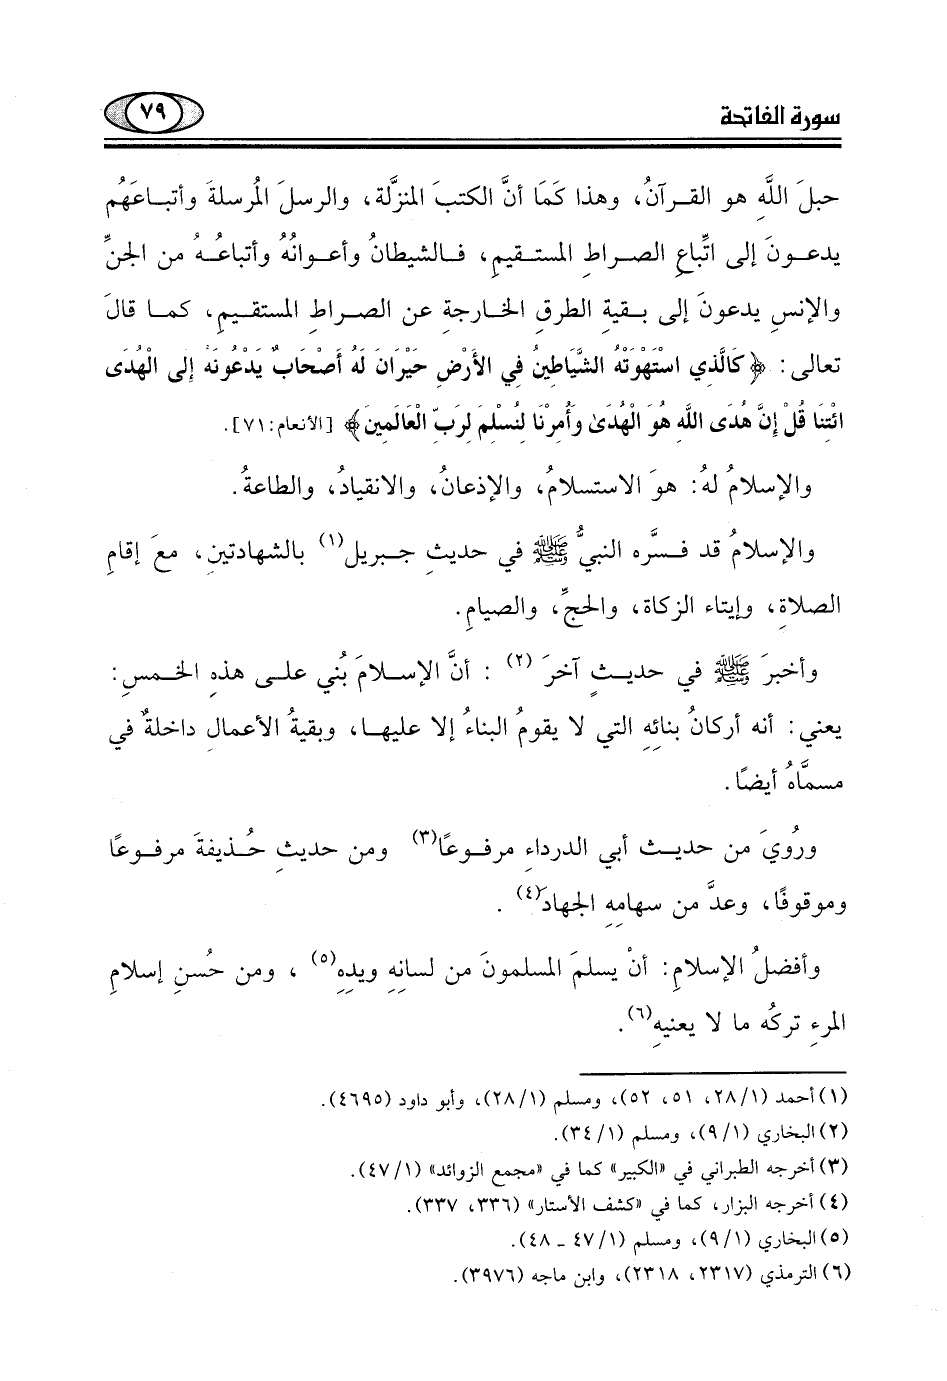 سورة الفاتحة
٧٩
حبلَ اللَّهِ هو القـرآنُ، وهذا كَمَا أنَّ الكتبَ المنزلة، والرسلَ المُرسلةَ وأتباعَهُم
يدعـونَ إلى اتِّباعِ الصـراطِ المستـقيمِ، فـالشيطانُ وأعـوانُهُ وأتباعُـهُ من الجنِّ
والإنسِ يدعونَ إلى بـقيةِ الطرقِ الخـارجةِ عن الصـراطِ المستقيـمِ، كمـا قالَ
تعالى: ﴿كَالَّذِي اسْتَهْوَتْهُ الشَّيَاطِينُ فِي الأَرْضِ حَيْرَانَ لَهُ أَصْحَابٌ يَدْعُونَهُ إِلَى الْهُدَى
ائْتِنَا قُلْ إِنَّ هُدَى اللَّهِ هُوَ الْهُدَىٰ وَأُمِرْنَا لِنُسْلِمَ لِرَبِّ الْعَالَمِينَ﴾ [الأنعام: ٧١].
والإسلامُ لهُ: هوَ الاستسلامُ، والإذعانُ، والانقيادُ، والطاعةُ.
والإسلامُ قد فسَّره النبيُّ ﷺ في حديثِ جـبريل(١) بالشهادتينِ، معَ إقامِ
الصلاةِ، وإيتاء الزكاة، والحجِّ، والصيامِ.
وأخبرَ ﷺ في حديثٍ آخرَ (٢) : أنَّ الإسـلامَ بُني علـى هذهِ الخـمسِ:
يعني: أنه أركانُ بنائِهِ التي لا يقومُ البناءُ إلا عليهـا، وبقيةُ الأعمالِ داخلةٌ في
مسمَّاهُ أيضًا.
ورُويَ من حديـث أبي الدرداءِ مرفـوعًا(٣) ومن حديثِ حُـذيفةَ مرفـوعًا
وموقوفًا، وعدَّ من سهامِهِ الجهادَ(٤) .
وأفضلُ الإسلامِ: أنْ يسلمَ المسلمونَ من لسانِهِ ويدِهِ(٥) ، ومن حُسنِ إسلامِ
المرءِ تركُه ما لا يعنيهِ(٦).
(١) أحمد (١/ ٢٨، ٥١، ٥٢)، ومسلم (١/ ٢٨)، وأبو داود (٤٦٩٥).
(٢) البخاري (١/ ٩)، ومسلم (١/ ٣٤).
(٣) أخرجه الطبراني في «الكبير» كما في «مجمع الزوائد» (١/ ٤٧).
(٤) أخرجه البزار، كما في «كشف الأستار» (٣٣٦، ٣٣٧).
(٥) البخاري (١/ ٩)، ومسلم (١/ ٤٧ ـ ٤٨).
(٦) الترمذي (٢٣١٧، ٢٣١٨)، وابن ماجه (٣٩٧٦).